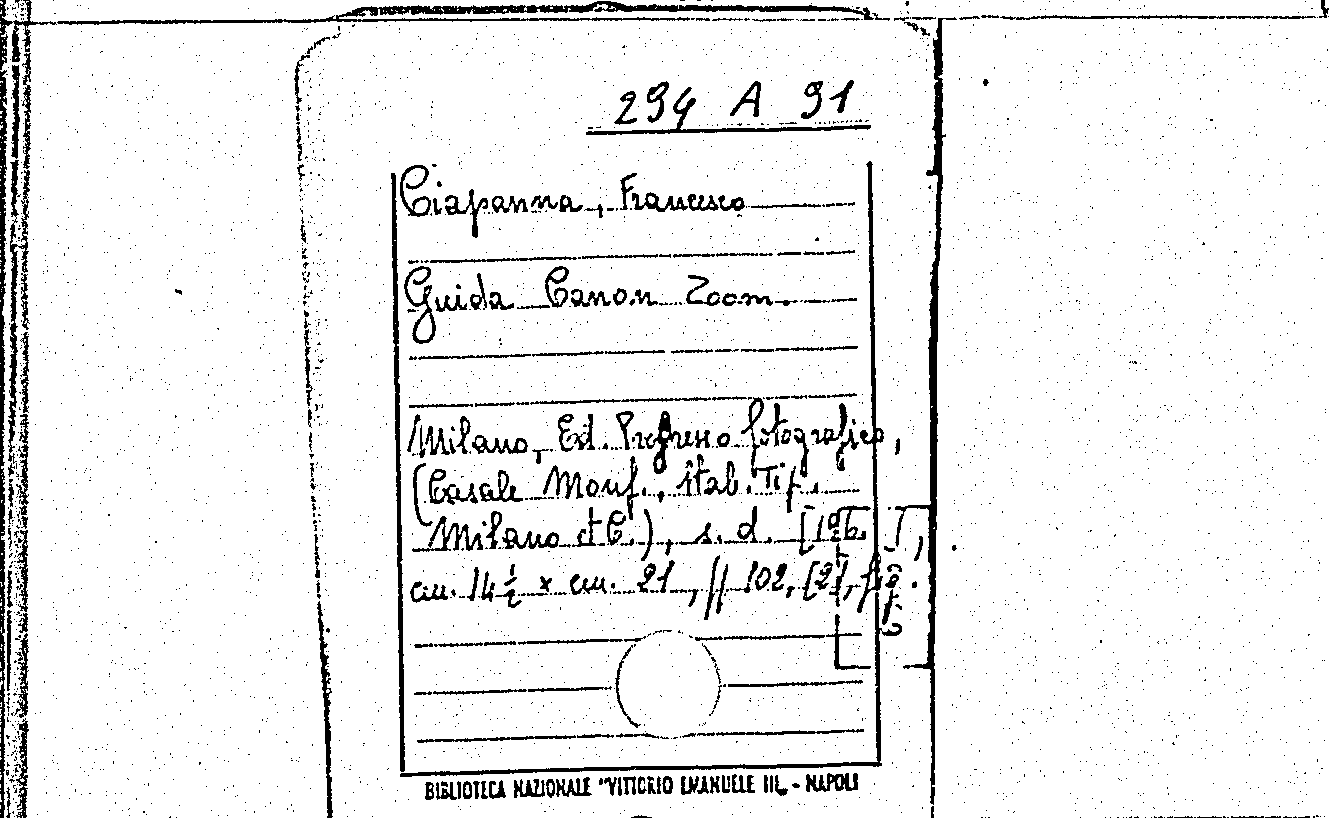 294 A 91
Ciapanna, Francesco
Guida Canon Zoom.
Milano, Ed. Progresso fotografico,
(Casale Monf., Stab. Tip.
Milano et C.), s. d. [196. ],
cm. 14 1/2 x cm. 21, // 102, [2], fig.
BIBLIOTECA NAZIONALE "VITTORIO EMANUELE III„ - NAPOLI